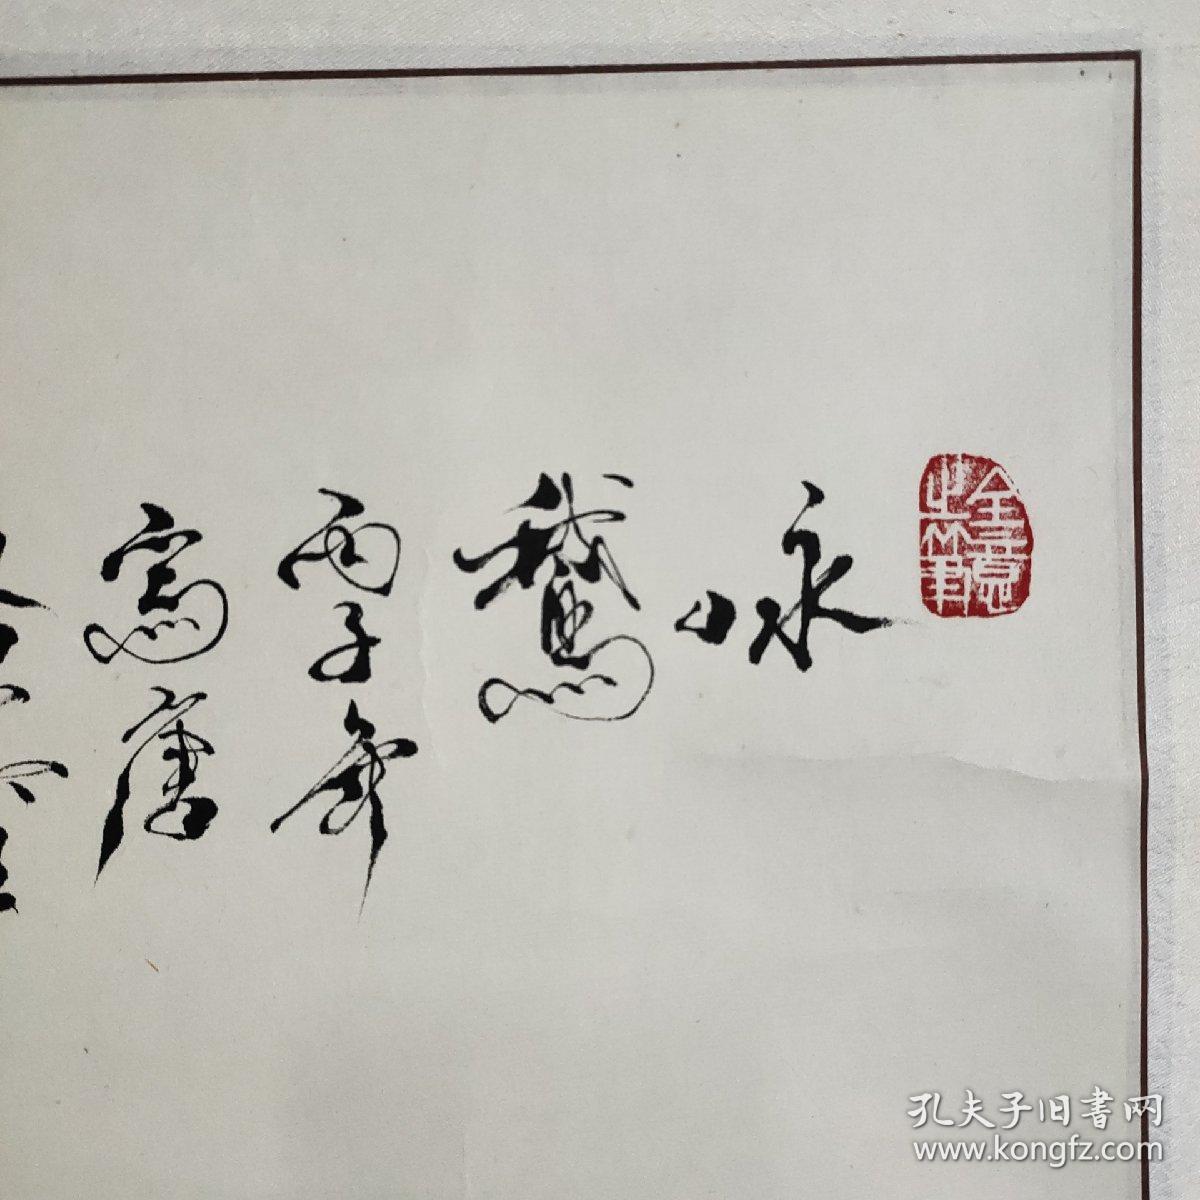 咏
鵞
丙子年
寫唐
孔夫子旧書网
www.kongfz.com